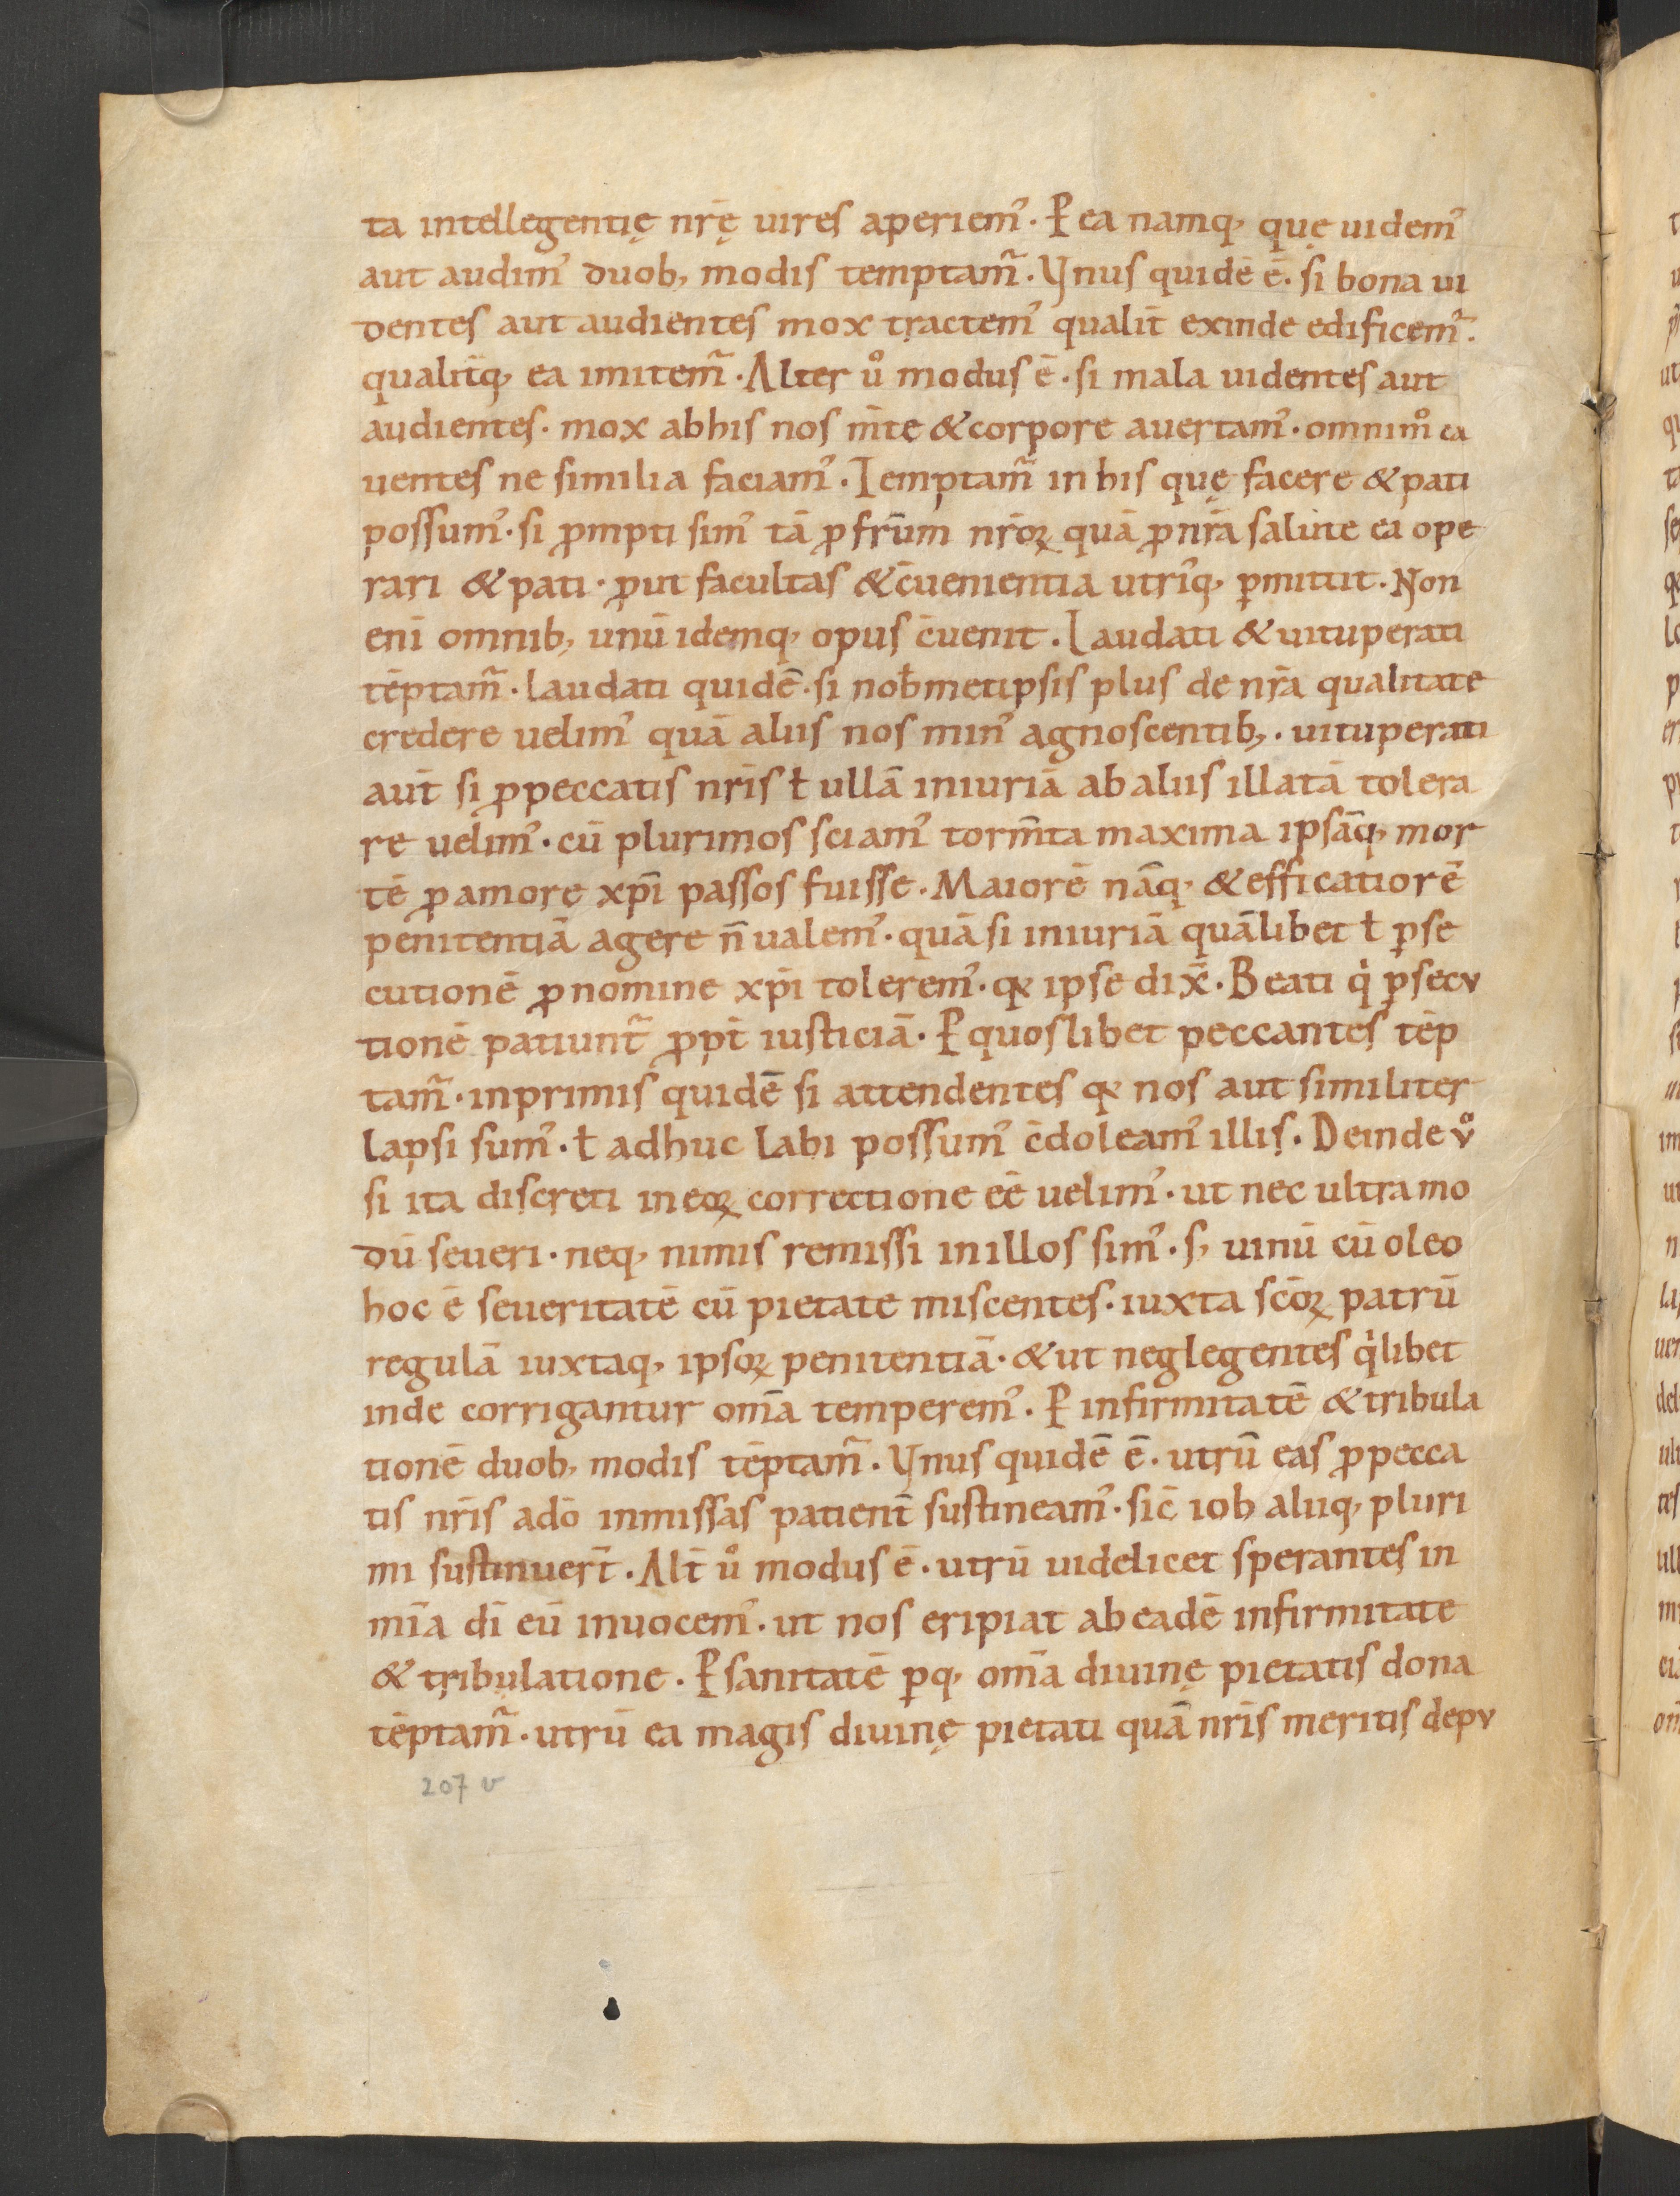 ta intellegentię nr̄ę uires aperiem᾽. P̱ ea namq; quę uidem᾽
aut audim᾽ duob; modis temptam̃. Vnus quidē ē. si bona ui
dentes aut audientes mox tractem᾽ qualit̄ exinde edificem̃.
qualit̄q; ea imitem̃. Alter ů modus ē. si mala uidentes aut
audientes. mox abhis nos m̄te &corpore auertam᾽. omnim̊ ca
uentes ne similia faciam᾽. Temptam̃ in his quę facere &pati
possum᾽. si ꝓmpti sim᾽ tā ꝓfrūm nr̄oꝝ quā ꝓnr̄a salute ea ope
rari &pati. ꝓut facultas &c̄uenientia utriq; ꝑmittit. Non
eni̅ omnib; unū idemq; opus c̄uenit. Laudati &uituperati
tēptam̃. laudati quidē. si nob̄metipsis plus de nr̄a qualitate
credere uelim᾽ quā aliis nos min᾽ agnoscentib;. uituperati
aut̄ si ꝓpeccatis nr̄is ƚ ullā iniuriā ab aliis illatā tolera
re uelim᾽. cū plurimos sciam᾽ torm̄ta maxima ipsāq; mor
tē ꝓamore xp̄i passos fuisse. Maiorē nāq; &efficatiorē
penitentiā agere n̄ ualem᾽. quā si iniuriā quālibet ƚ ꝑse
cutionē ꝓnomine xp̄i tolerem᾽. qđ ipse dix̄. Beati q̇ ꝑsecu
tionē patiunt̃ ꝓpt̄ iusticiā. P̱ quoslibet peccantes tēp
tam̃. inprimis quidē si attendentes qđ nos aut similiter
lapsi sum᾽. ƚ adhuc labi possum᾽ c̄doleam᾽ illis. Deinde ů
si ita discreti ineoꝝ correctione eē uelim᾽. ut nec ultra mo
dū seueri. neq; nimis remissi inillos sim᾽. s; uinū cū oleo
hoc ē seueritatē cū pietate miscentes. iuxta sc̄oꝝ patrū
regulā iuxtaq; ipsoꝝ penitentiā. &ut neglegentes q̇libet
inde corrigantur om̄a temperem᾽. P̱ infirmitatē &tribula
tionē duob; modis tēptam̃. Vnus quidē ē. utrū eas ꝓpecca
tis nr̄is ado̅ inmissas patient̄ sustineam᾽. sic̄ iob aliiq; pluri
mi sustinuer̄t. Alt̄ ů modus ē. utrū uidelicet sperantes in
mīa dī eū inuocem᾽. ut nos eripiat ab eadē infirmitate
& tribulatione. P̱ sanitatē ꝑq; om̄a diuinę pietatis dona
tēptam̃. utrū ea magis diuinę pietati quā nr̄is meritis depu
207 v